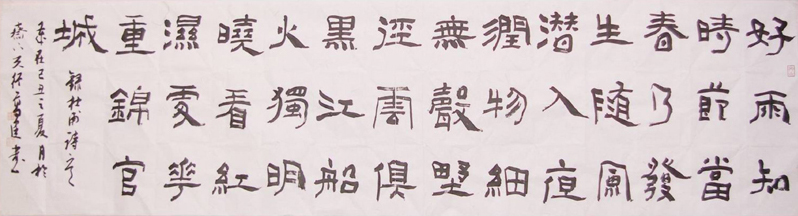 好雨知
時節當
春乃發
生隨風
潛入夜
潤物細
無聲野
徑雲俱
黑江船
火獨明
曉看紅
濕處花
重錦官
城
録杜甫詩
歲在己丑之夏月於